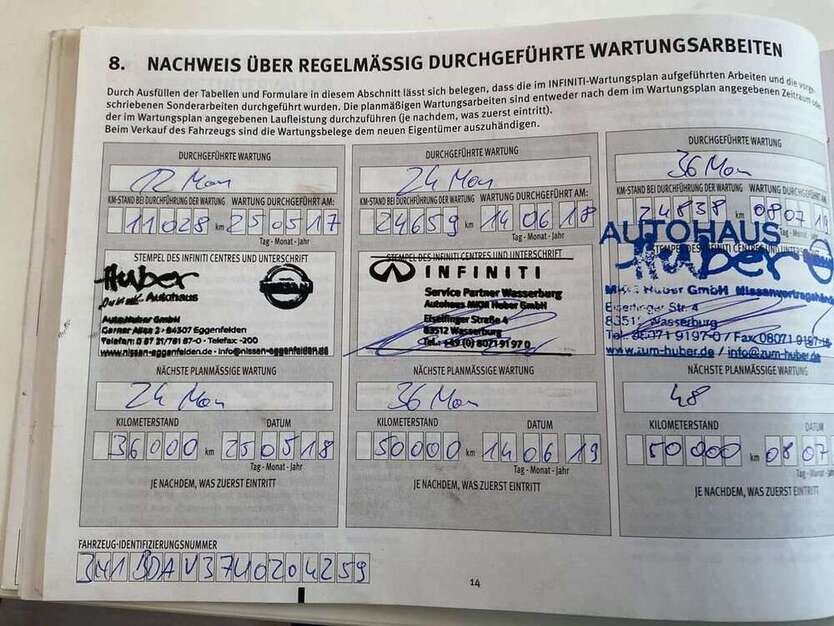 8. NACHWEIS ÜBER REGELMÄSSIG DURCHGEFÜHRTE WARTUNGSARBEITEN
Durch Ausfüllen der Tabellen und Formulare in diesem Abschnitt lässt sich belegen, dass die im INFINITI-Wartungsplan aufgeführten Arbeiten und die vorge-
schriebenen Sonderarbeiten durchgeführt wurden. Die planmäßigen Wartungsarbeiten sind entweder nach dem im Wartungsplan angegebenen Zeitraum oder
der im Wartungsplan angegebenen Laufleistung durchzuführen (je nachdem, was zuerst eintritt).
Beim Verkauf des Fahrzeugs sind die Wartungsbelege dem neuen Eigentümer auszuhändigen.
DURCHGEFÜHRTE WARTUNG
12 Mon
KM-STAND BEI DURCHFÜHRUNG DER WARTUNG WARTUNG DURCHGEFÜHRT AM:
11028 km 250517
Tag - Monat - Jahr
STEMPEL DES INFINITI CENTRES UND UNTERSCHRIFT
Huber
Autohaus
NISSAN
Auto Huber GmbH
84307 Eggenfelden
www.nissan-eggenfelden.de · info@nissan-eggenfelden.de
NÄCHSTE PLANMÄSSIGE WARTUNG
24 Mon
KILOMETERSTAND DATUM
36000 km 250518
Tag - Monat - Jahr
JE NACHDEM, WAS ZUERST EINTRITT
DURCHGEFÜHRTE WARTUNG
24 Mon
KM-STAND BEI DURCHFÜHRUNG DER WARTUNG WARTUNG DURCHGEFÜHRT AM:
24659 km 140618
Tag - Monat - Jahr
STEMPEL DES INFINITI CENTRES UND UNTERSCHRIFT
INFINITI
Service Partner Wasserburg
Autohaus MKM Huber GmbH
Eiselfinger Straße 4
83512 Wasserburg
Tel.: +49 (0) 8071 9197 0
NÄCHSTE PLANMÄSSIGE WARTUNG
36 Mon
KILOMETERSTAND DATUM
50000 km 140619
Tag - Monat - Jahr
JE NACHDEM, WAS ZUERST EINTRITT
DURCHGEFÜHRTE WARTUNG
36 Mon
KM-STAND BEI DURCHFÜHRUNG DER WARTUNG WARTUNG DURCHGEFÜHRT
24838 km 0807
AUTOHAUS
Huber
MKM Huber GmbH
Eiselfinger Str. 4
83512 Wasserburg
Tel. 08071 9197-0 / Fax 08071 9197-
www.zum-huber.de / info@zum-huber.de
NÄCHSTE PLANMÄSSIGE WARTUNG
48
KILOMETERSTAND DATUM
50000 km 0807
Tag - Monat
JE NACHDEM, WAS ZUERST EINTRITT
FAHRZEUG-IDENTIFIZIERUNGSNUMMER
14